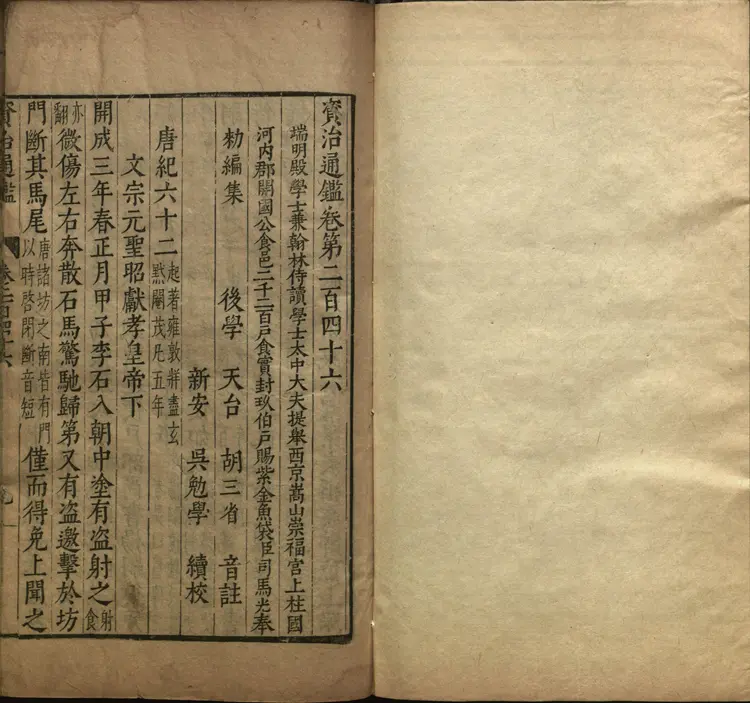 資治通鑑卷第二百四十六
端明殿學士兼翰林侍讀學士太中大夫提舉西京嵩山崇福宮上柱國
河内郡開國公食邑二千二百戸食實封玖伯戸賜紫金魚袋臣司馬光奉
勑編集 後學 天台 胡三省 音註
新安 吳勉學 續校
唐紀六十二 起著雍敦牂盡玄黓閹茂凡五年
文宗元聖昭獻孝皇帝下
開成三年春正月甲子李石入朝中塗有盗射之 射食
亦翻 微傷左右奔散石馬驚馳歸第又有盗邀擊於坊
門斷其馬尾 唐諸坊之南皆有門以時啓閉斷音短 僅而得免上聞之
資治通鑑 卷二百四十六